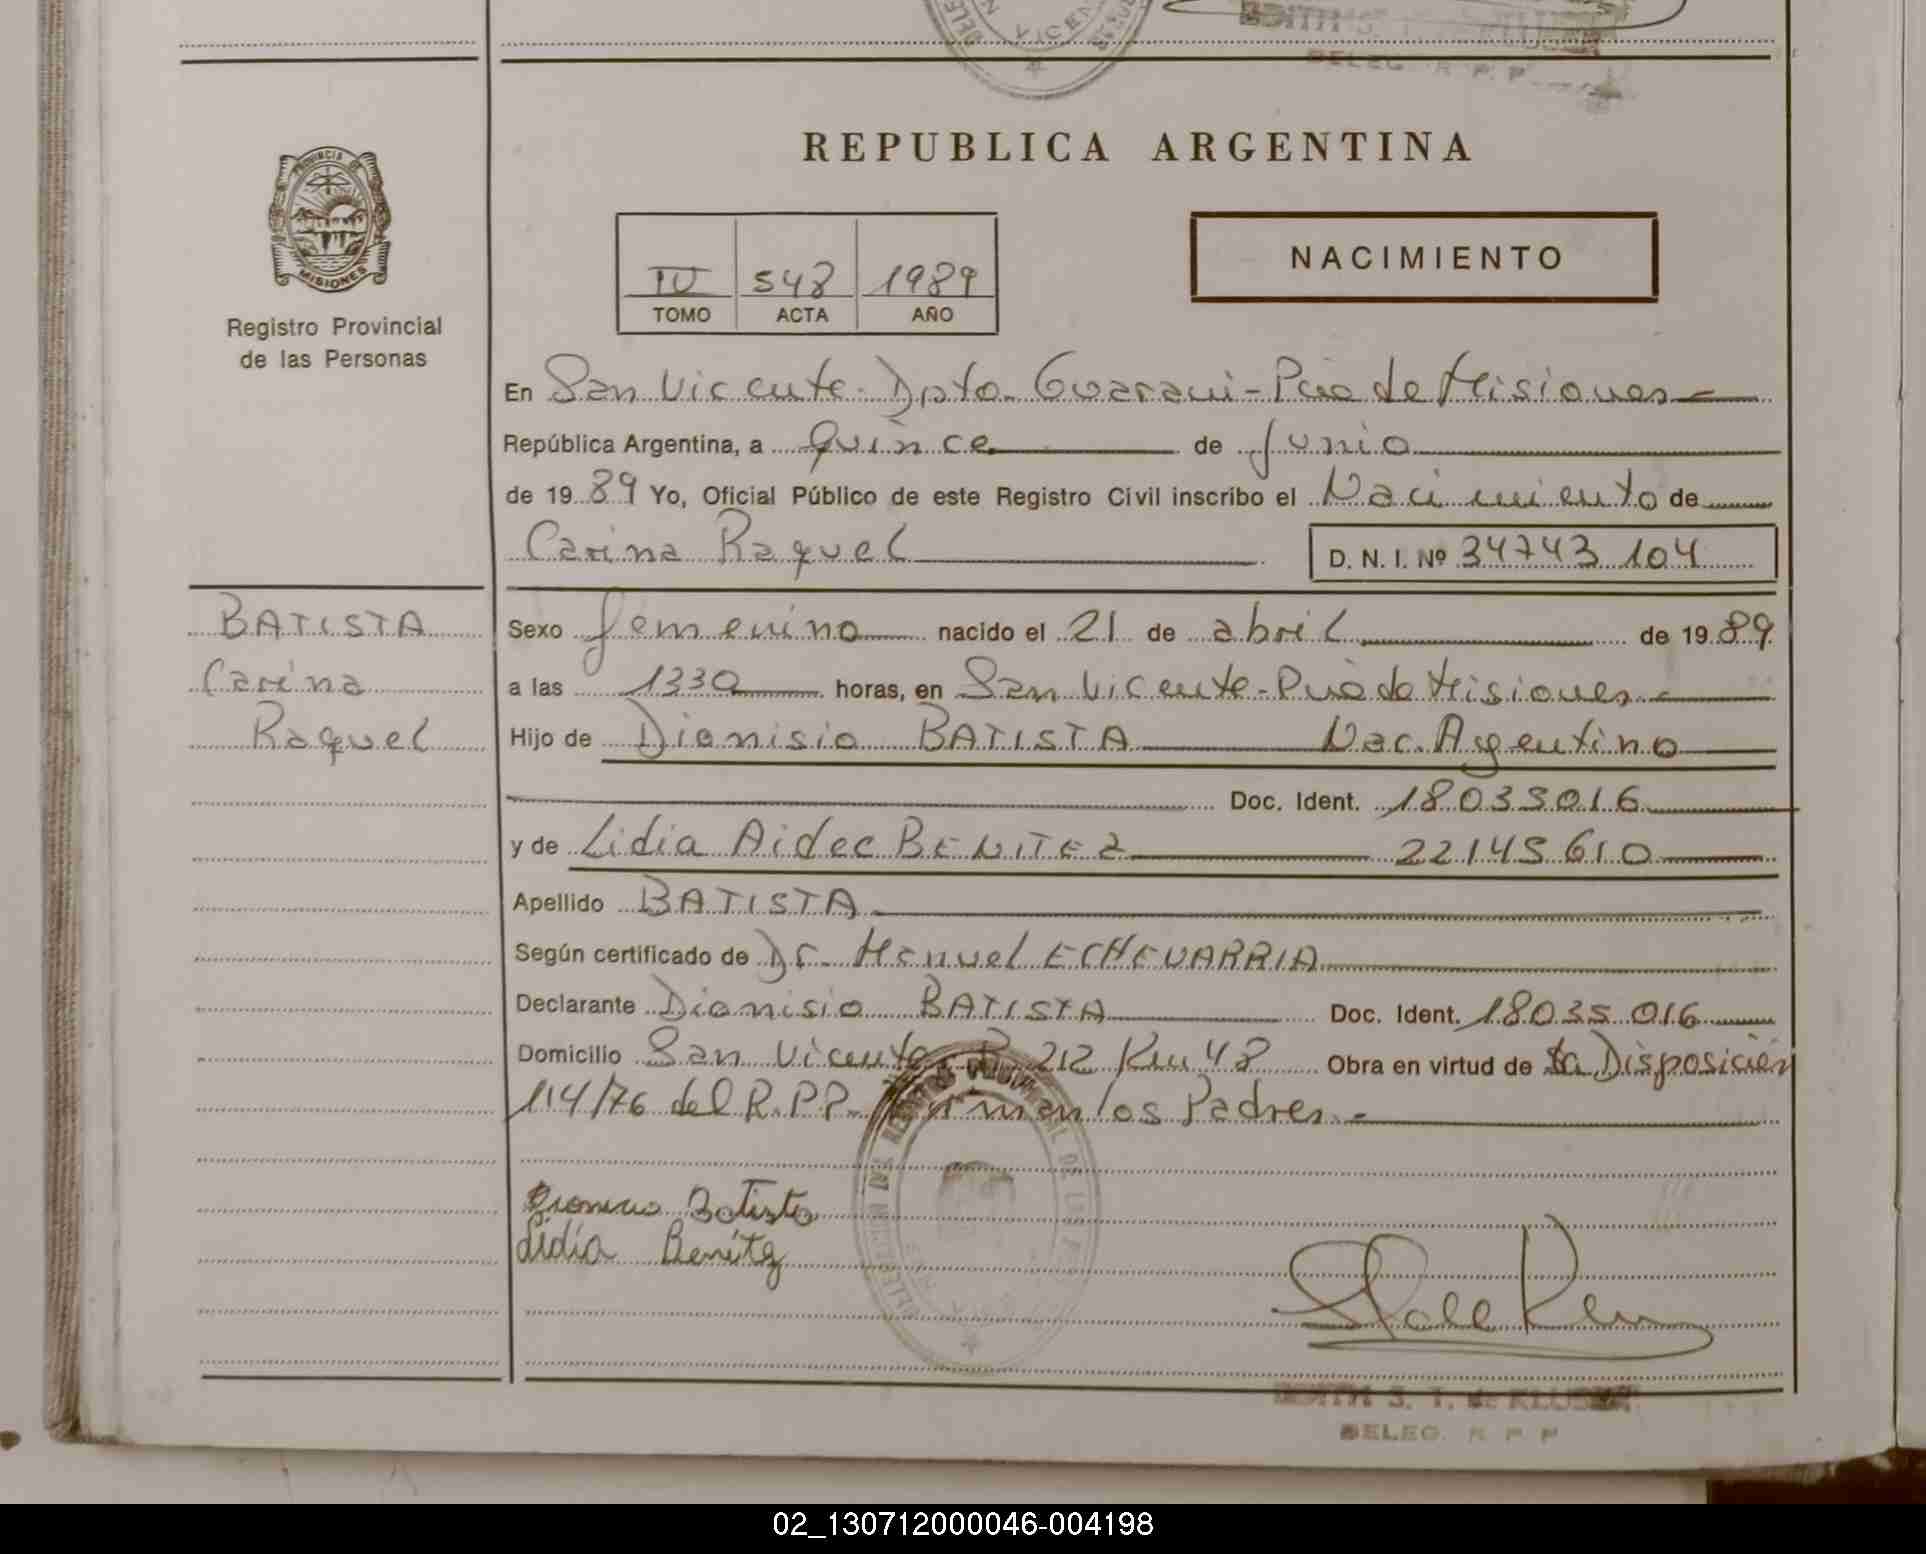 REPUBLICA ARGENTINA
PROVINCIA DE
MISIONES
Registro Provincial
de las Personas
IV 548 1989
TOMO ACTA AÑO
NACIMIENTO
En San Vicente - Dpto. Guarani - Pcia de Misiones
República Argentina, a quince de Junio
de 1989 Yo, Oficial Público de este Registro Civil inscribo el Nacimiento de
Carina Raquel D. N. I. Nº 34743 104
BATISTA
Carina
Raquel
Sexo femenino nacido el 21 de abril de 1989
a las 1330 horas, en San Vicente - Pcia de Misiones
Hijo de Dionisio BATISTA Nac. Argentino
Doc. Ident. 18035016
y de Lidia Aidee BENITEZ 22145610
Apellido BATISTA
Según certificado de Dr. Manuel ECHEVARRIA
Declarante Dionisio BATISTA Doc. Ident. 18035 016
Domicilio San Vicente R 212 Km 48 Obra en virtud de la Disposición
114/76 del R.P.P. Firman los Padres
Batista
Lidia Benitez
EDITH S. T. de KLUSER
DELEG. R P P
02_130712000046-004198